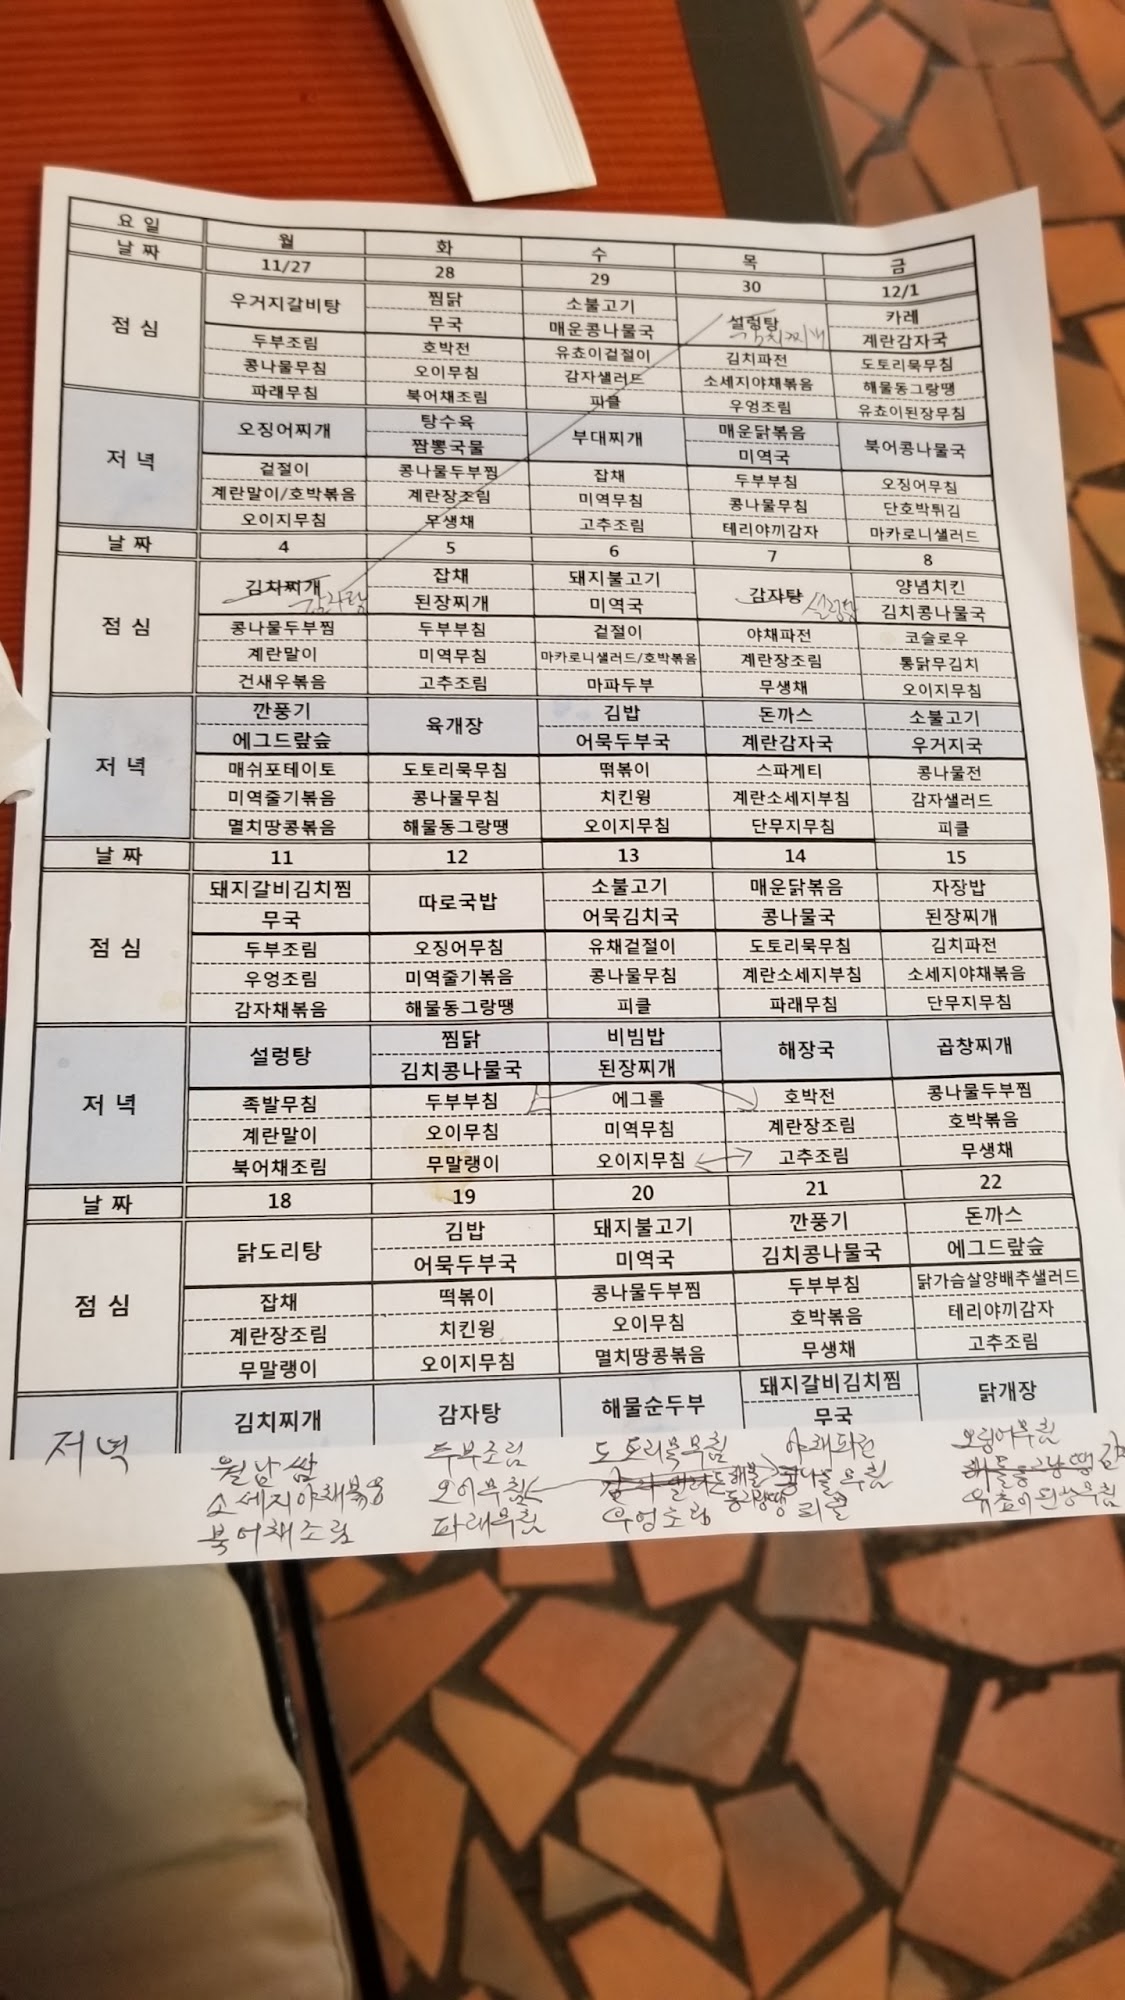 요 일 월 화 수 목 금
날 짜 11/27 28 29 30 12/1
점 심 우거지갈비탕 찜닭 소불고기 설렁탕 카레
무국 매운콩나물국 김치찌개 계란감자국
두부조림 호박전 유쵸이겉절이 김치파전 도토리묵무침
콩나물무침 오이무침 감자샐러드 소세지야채볶음 해물동그랑땡
파래무침 북어채조림 피클 우엉조림 유쵸이된장무침
저 녁 오징어찌개 탕수육 부대찌개 매운닭볶음 북어콩나물국
짬뽕국물 미역국
겉절이 콩나물두부찜 잡채 두부부침 오징어무침
계란말이/호박볶음 계란장조림 미역무침 콩나물무침 단호박튀김
오이지무침 무생채 고추조림 테리야끼감자 마카로니샐러드
날 짜 4 5 6 7 8
점 심 김치찌개 잡채 돼지불고기 감자탕 양념치킨
감자탕 된장찌개 미역국 설렁탕 김치콩나물국
콩나물두부찜 두부부침 겉절이 야채파전 코슬로우
계란말이 미역무침 마카로니샐러드/호박볶음 계란장조림 통닭무김치
건새우볶음 고추조림 마파두부 무생채 오이지무침
저 녁 깐풍기 육개장 김밥 돈까스 소불고기
에그드랖숲 어묵두부국 계란감자국 우거지국
매쉬포테이토 도토리묵무침 떢볶이 스파게티 콩나물전
미역줄기볶음 콩나물무침 치킨윙 계란소세지부침 감자샐러드
멸치땅콩볶음 해물동그랑땡 오이지무침 단무지무침 피클
날 짜 11 12 13 14 15
점 심 돼지갈비김치찜 따로국밥 소불고기 매운닭볶음 자장밥
무국 어묵김치국 콩나물국 된장찌개
두부조림 오징어무침 유채겉절이 도토리묵무침 김치파전
우엉조림 미역줄기볶음 콩나물무침 계란소세지부침 소세지야채볶음
감자채볶음 해물동그랑땡 피클 파래무침 단무지무침
저 녁 설렁탕 찜닭 비빔밥 해장국 곱창찌개
김치콩나물국 된장찌개
족발무침 두부부침 에그롤 호박전 콩나물두부찜
계란말이 오이무침 미역무침 계란장조림 호박볶음
북어채조림 무말랭이 오이지무침 고추조림 무생채
날 짜 18 19 20 21 22
점 심 닭도리탕 김밥 돼지불고기 깐풍기 돈까스
어묵두부국 미역국 김치콩나물국 에그드랖숲
잡채 떡볶이 콩나물두부찜 두부부침 닭가슴살양배추샐러드
계란장조림 치킨윙 오이무침 호박볶음 테리야끼감자
무말랭이 오이지무침 멸치땅콩볶음 무생채 고추조림
저녁 김치찌개 감자탕 해물순두부 돼지갈비김치찜 닭개장
무국
월남쌈 두부조림 도토리묵무침 야채파전 오징어무침
소세지야채볶음 오이무침 해물동그랑땡 콩나물무침
북어채조림 파래무침 우엉조림 피클 유쵸이된장무침